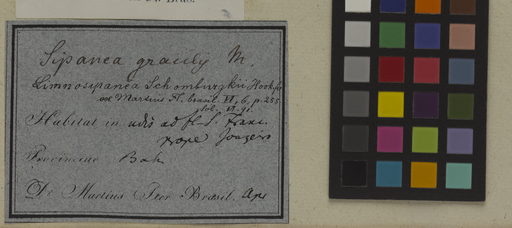 Sipanea gracily M.
Limnosipanea Schomburgkii Hook. f.
Martius Fl. brasil. VI, 6, p. 255
tab.
Habitat in udis ad fl. S. Franc.
prope Joazeiro
Provinciae Bah
Dr. Martius Iter Brasil. Apr